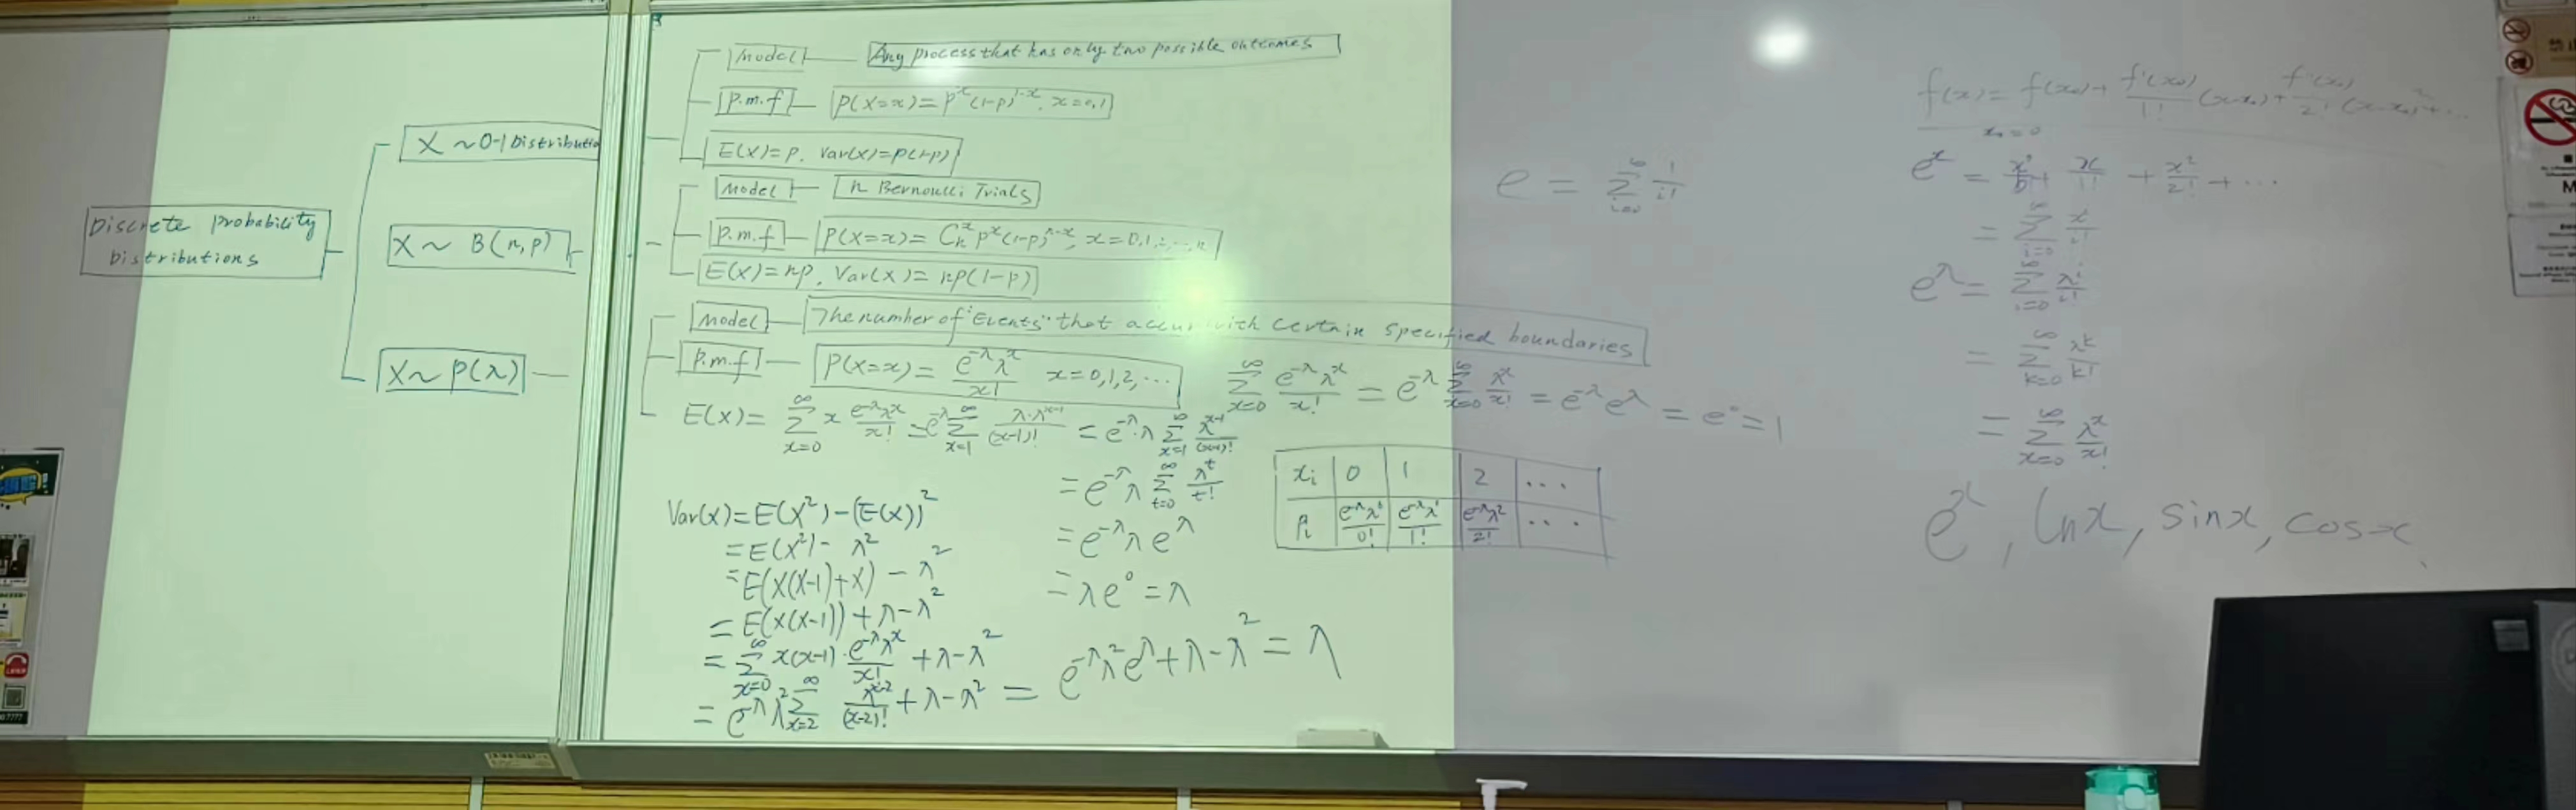 Discrete probability
Distributions
X ~ 0-1 Distributio
X ~ B(n,p)
X ~ P(λ)
Model
Any process that has only two possible outcomes
P.m.f
P(X=x) = p^x (1-p)^{1-x}, x=0,1
E(X)=p, Var(X)=p(1-p)
Model
n Bernoulli Trials
P.m.f
P(X=x) = C_n^x p^x (1-p)^{n-x}, x=0,1,2,...,n
E(X)=np, Var(X)=np(1-p)
Model
The number of "Events" that occur with certain specified boundaries
P.m.f
P(X=x) = \frac{e^{-λ}λ^x}{x!} x=0,1,2,...
\sum_{x=0}^{∞} \frac{e^{-λ}λ^x}{x!} = e^{-λ} \sum_{x=0}^{∞} \frac{λ^x}{x!} = e^{-λ}e^{λ} = e^0 = 1
E(X) = \sum_{x=0}^{∞} x \frac{e^{-λ}λ^x}{x!} = e^{-λ} \sum_{x=1}^{∞} \frac{λ·λ^{x-1}}{(x-1)!} = e^{-λ}·λ \sum_{x=1}^{∞} \frac{λ^{x-1}}{(x-1)!}
= e^{-λ}λ \sum_{t=0}^{∞} \frac{λ^t}{t!}
= e^{-λ}λe^{λ}
= λe^0 = λ
x_i 0 1 2 ...
p_i \frac{e^{-λ}λ^0}{0!} \frac{e^{-λ}λ^1}{1!} \frac{e^{-λ}λ^2}{2!} ...
Var(X) = E(X^2) - (E(X))^2
= E(X^2) - λ^2
= E(X(X-1)+X) - λ^2
= E(X(X-1)) + λ - λ^2
= \sum_{x=0}^{∞} x(x-1)·\frac{e^{-λ}λ^x}{x!} + λ - λ^2
= e^{-λ}λ^2 \sum_{x=2}^{∞} \frac{λ^{x-2}}{(x-2)!} + λ - λ^2 = e^{-λ}λ^2e^{λ} + λ - λ^2 = λ
e = \sum_{i=0}^{∞} \frac{1}{i!}
f(x) = f(x_0) + \frac{f'(x_0)}{1!}(x-x_0) + \frac{f''(x_0)}{2!}(x-x_0)^2 + ...
x_0 = 0
e^x = \frac{x^0}{0!} + \frac{x}{1!} + \frac{x^2}{2!} + ...
= \sum_{i=0}^{∞} \frac{x^i}{i!}
e^λ = \sum_{i=0}^{∞} \frac{λ^i}{i!}
= \sum_{k=0}^{∞} \frac{λ^k}{k!}
= \sum_{x=0}^{∞} \frac{λ^x}{x!}
e^x, lnx, sinx, cosx